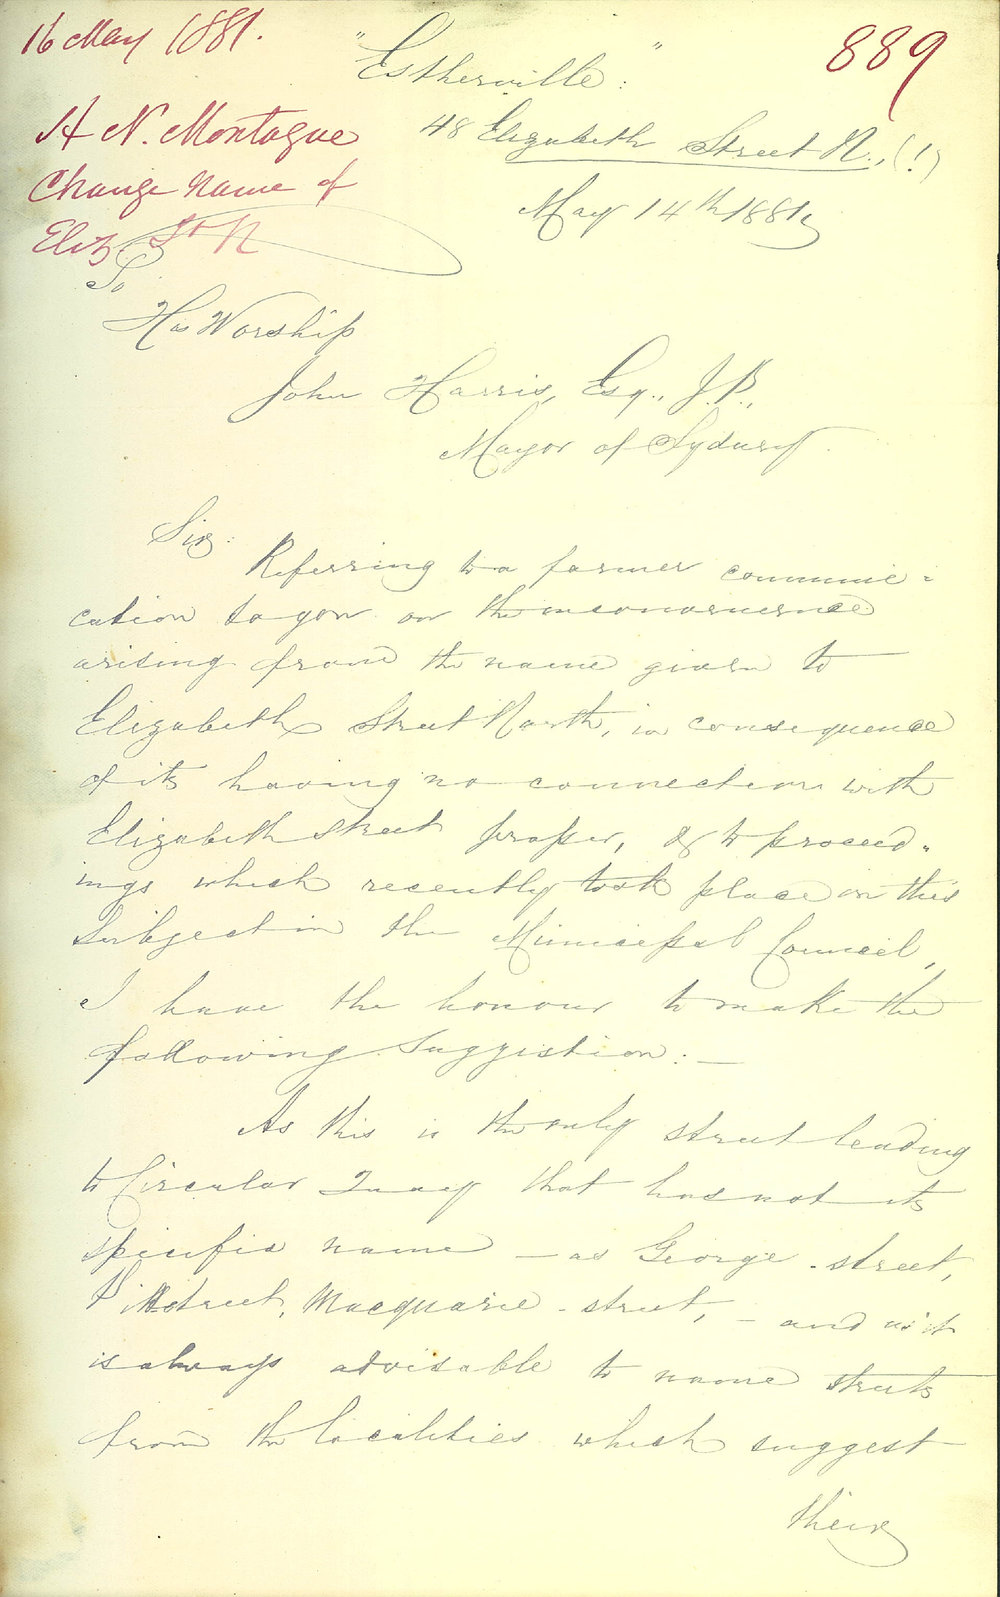 16 May 1881.
889
H N. Montague
Change name of
Eliz St N
"Estherville:"
48 Elizabeth Street N., (!)
May 14th 1881,
To
His Worship
John Harris, Esq., J.P.,
Mayor of Sydney.
Sir:
Referring to a former communi=
cation to you on the inconvenience
arising from the name given to
Elizabeth Street North, in consequence
of its having no connection with
Elizabeth Street proper, & to proceed-
ings which recently took place on this
subject in the Municipal Council,
I have the honour to make the
following suggestion:—
As this is the only street leading
to Circular Quay that has not its
specific name – as George-street,
Pitt Street, Macquarie-street, – and as it
is always advisable to name streets
from the localities which suggest
their